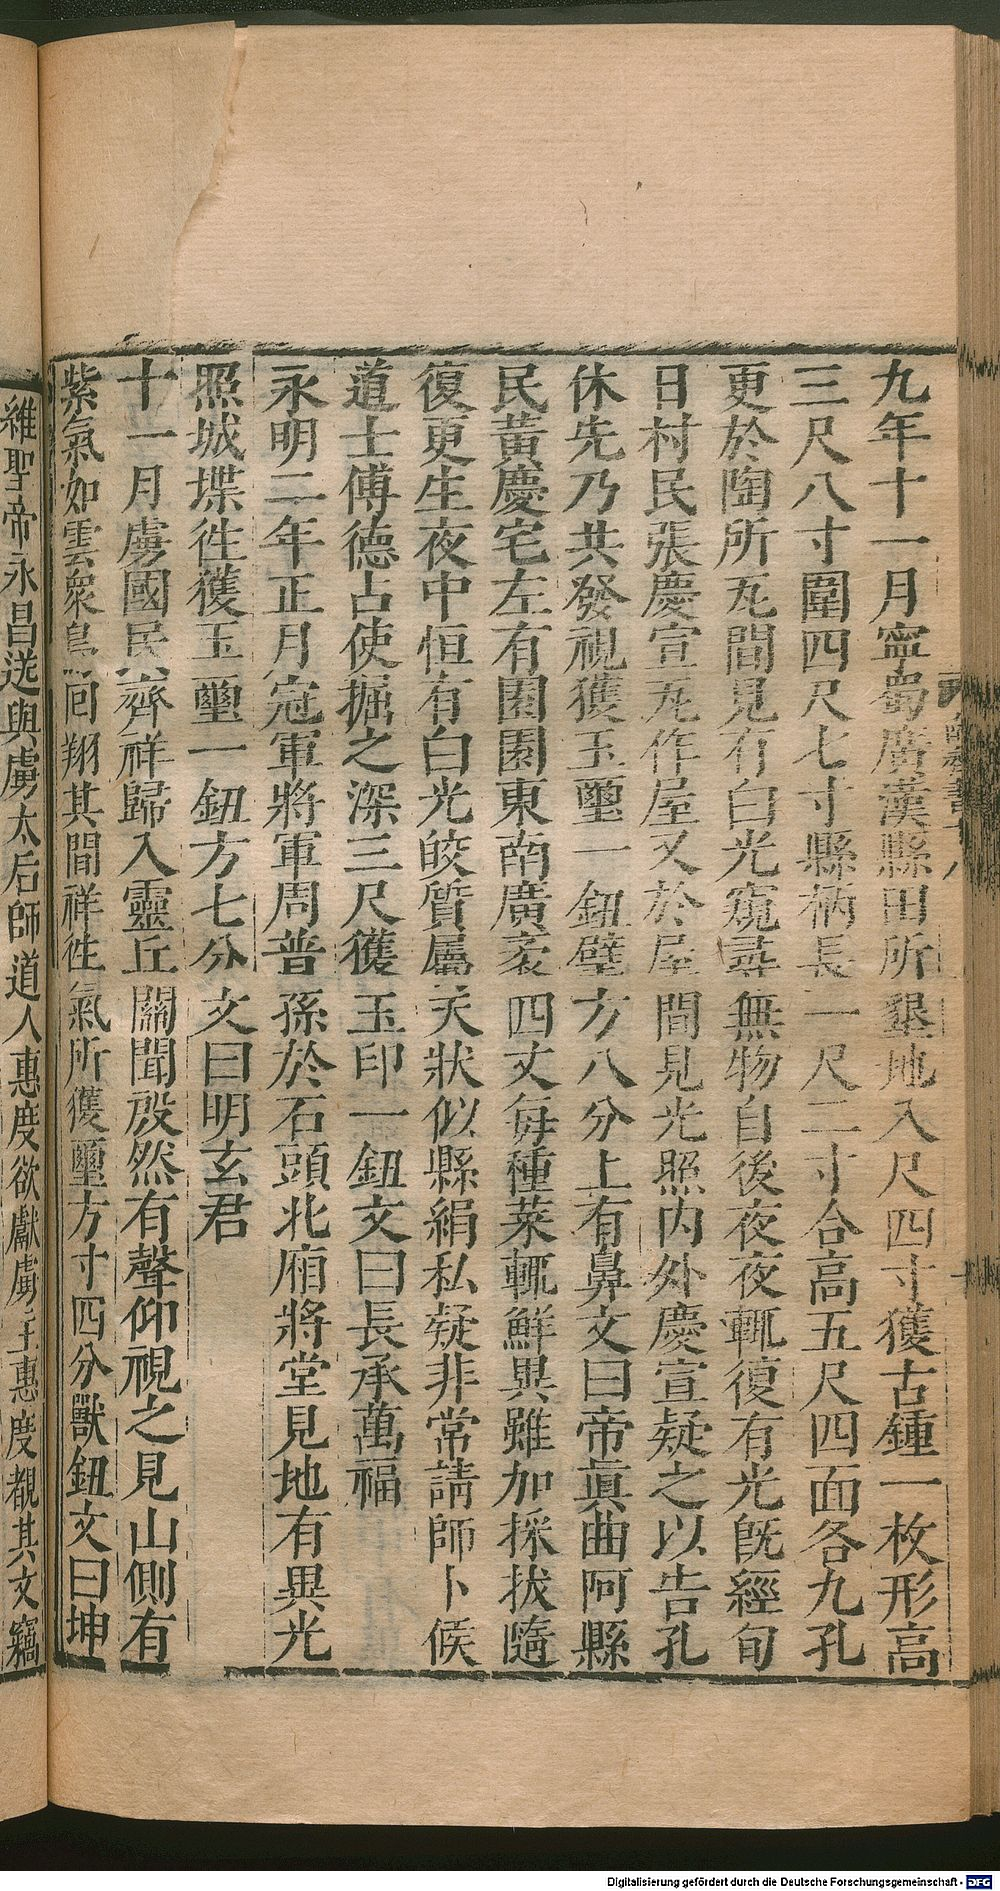 九年十一月寧蜀廣漢縣田所墾地入尺四寸獲古鍾一枚形高
三尺八寸圍四尺七寸縣柄長一尺二寸合高五尺四面各九孔
更於陶所瓦間見有白光窺尋無物自後夜夜輒復有光旣經旬
日村民張慶宣瓦作屋又於屋間見光照内外慶宣疑之以告孔
休先乃共發視獲玉璽一鈕璧方八分上有鼻文曰帝眞曲阿縣
民黃慶宅左有園園東南廣袤四丈每種菜輒鮮異雖加採拔隨
復更生夜中恒有白光皎質屬天狀似縣絹私疑非常請師卜候
道士傅德占使掘之深三尺獲玉印一鈕文曰長承萬福
永明二年正月冠軍將軍周普孫於石頭北廂將堂見地有異光
照城堞徃獲玉璽一鈕方七分文曰明玄君
十一月虜國民齊祥歸入靈丘關聞殷然有聲仰視之見山側有
紫氣如雲衆鳥回翔其間祥徃氣所獲璽方寸四分獸鈕文曰坤
維聖帝永昌送與虜太后師道人惠度欲獻虜主惠度覩其文竊
Digitalisierung gefördert durch die Deutsche Forschungsgemeinschaft - DFG